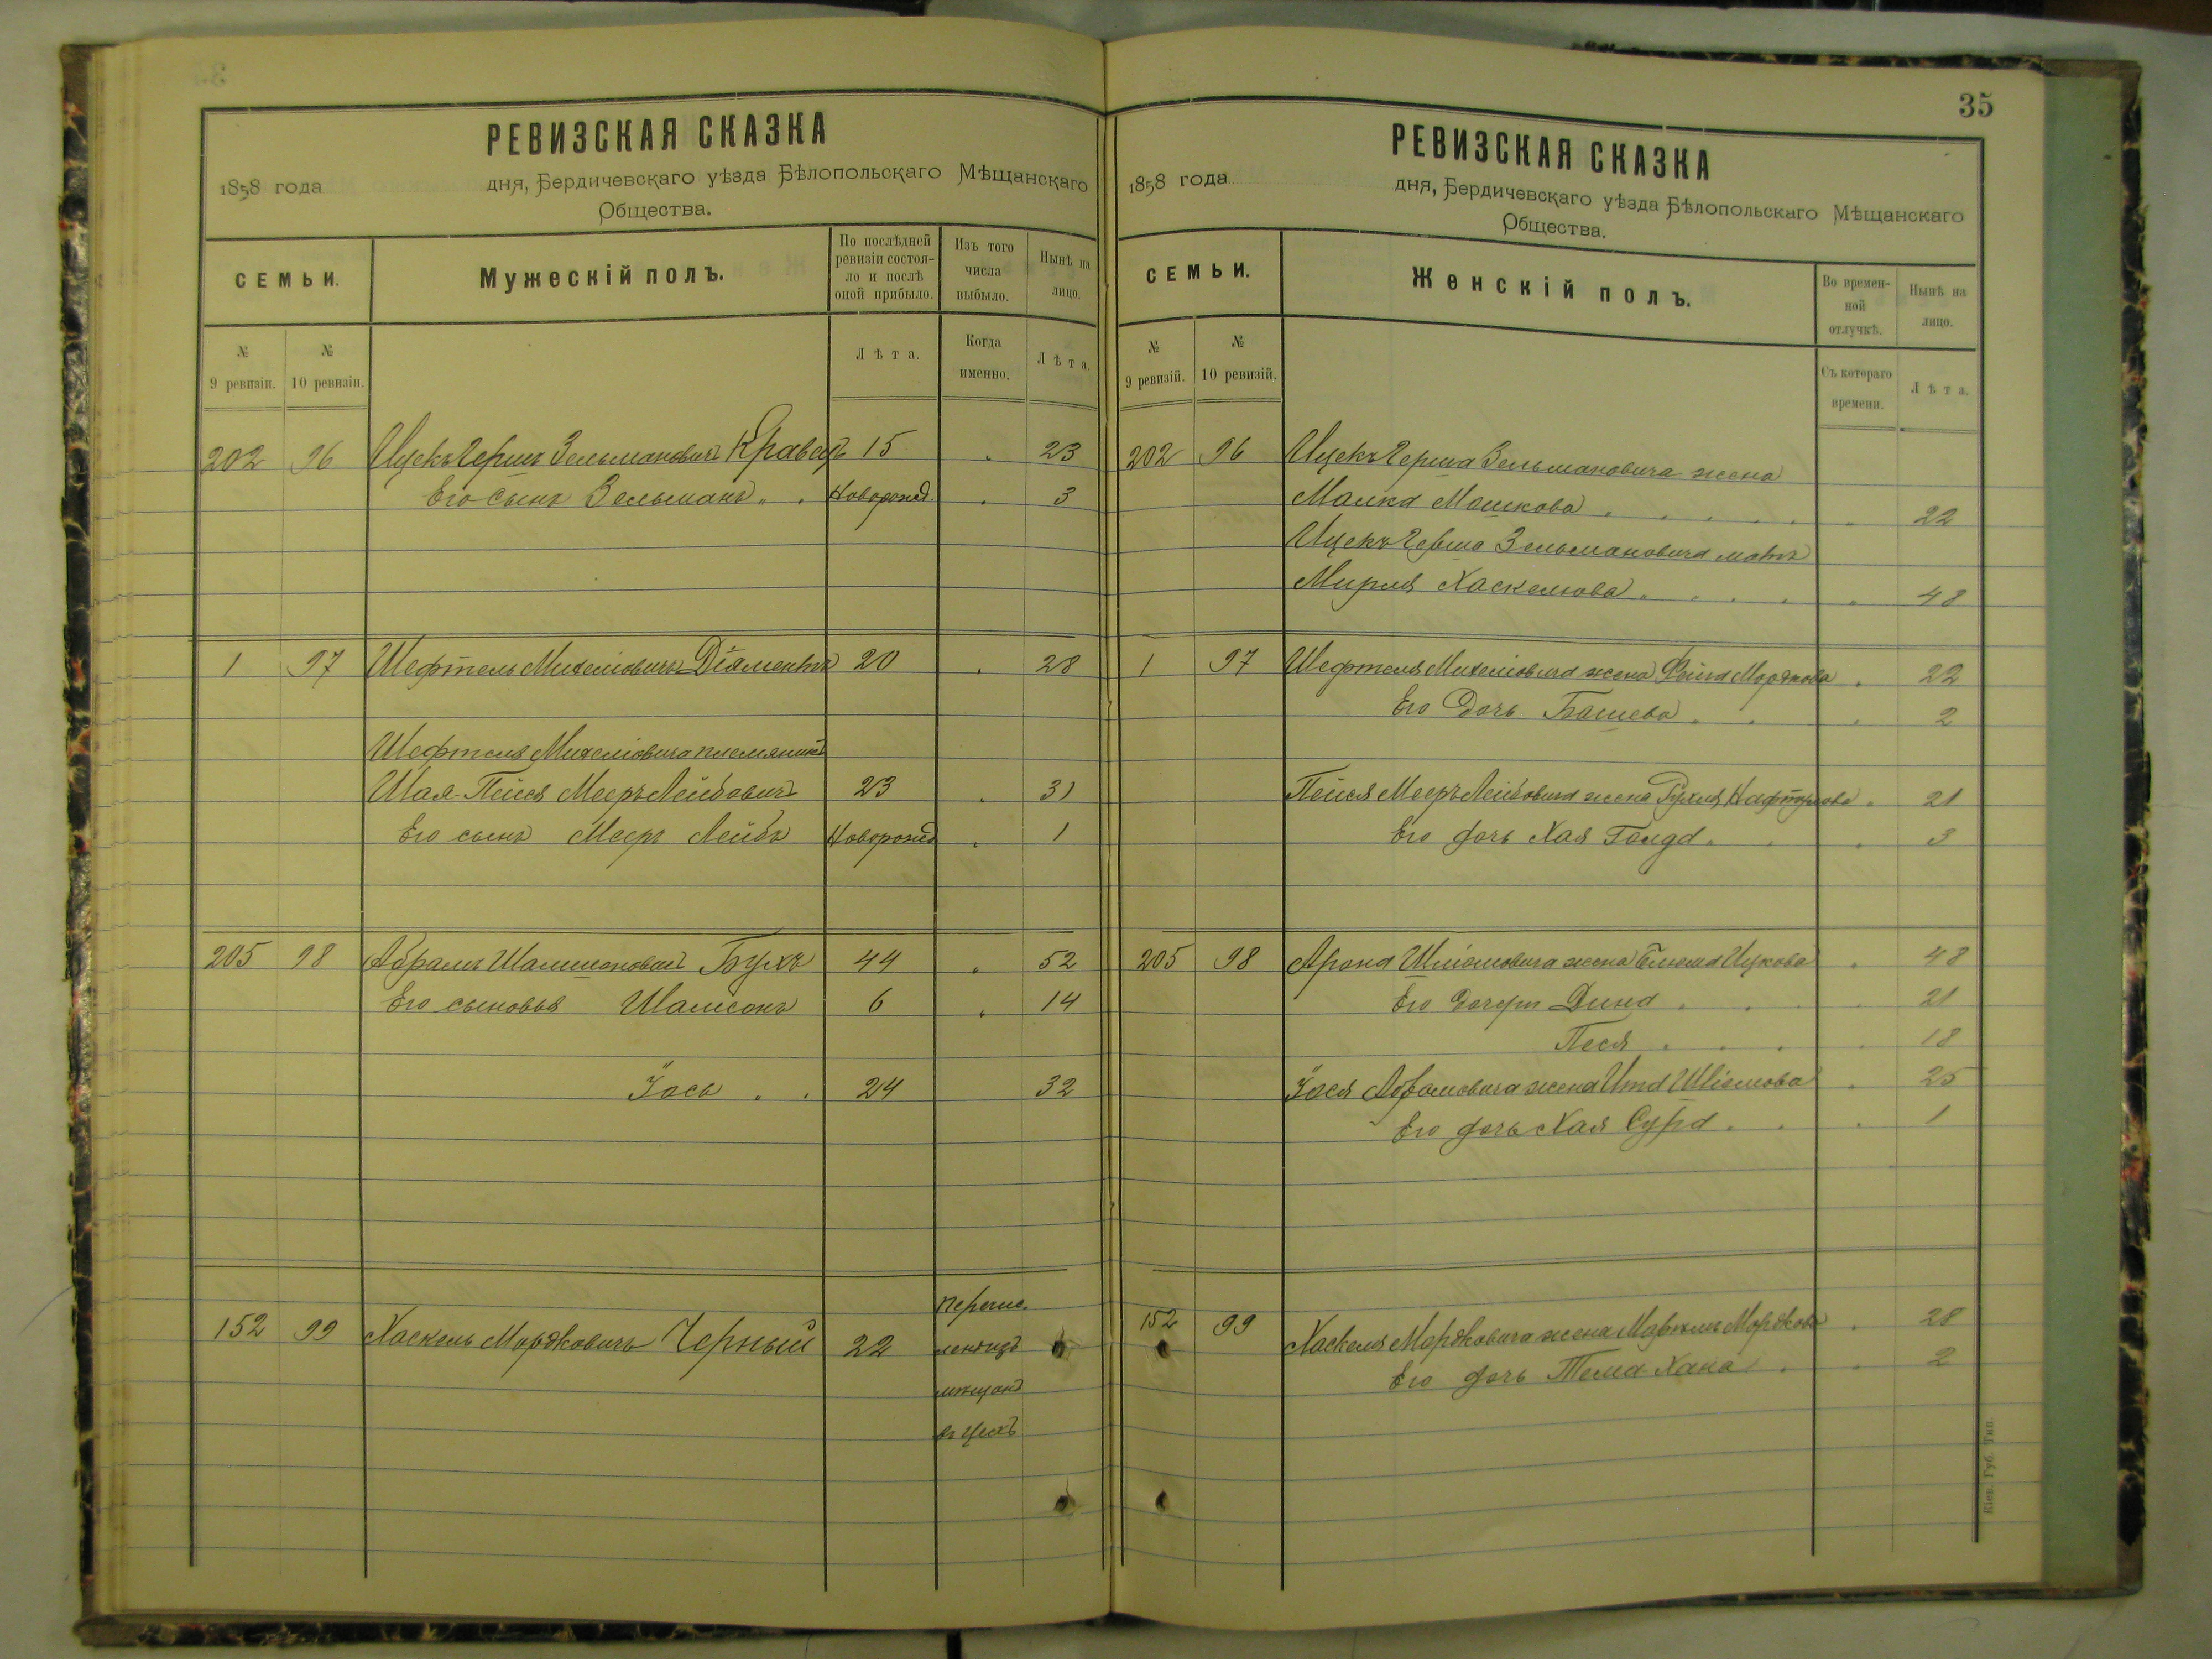 РЕВИЗСКАЯ СКАЗКА
1858 года дня, Бердичевскаго уѣзда Бѣлопольскаго Мѣщанскаго
Общества.
СЕМЬИ. Мужескій полъ. По послѣдней ревизіи состояло и послѣ оной прибыло. Изъ того числа выбыло. Нынѣ на лицо.
№ 9 ревизіи. № 10 ревизіи. Лѣта. Когда именно. Лѣта.
202 96 Ицекъ Гершъ Зельмановичъ Кравецъ 15 23
Его сынъ Зельманъ Новорожд. 3
1 97 Шефтель Михелiовичъ Дiяментъ 20 28
Шефтеля Михелiовича племянникъ
Шая-Пейся Мееръ Лейбовичъ 23 31
Его сынъ Мееръ Лейбъ Новорожд 1
205 98 Абрамъ Шалисоновичъ Бухъ 44 52
Его сыновья Шамсонъ 6 14
Iось 24 32
152 99 Хаскель Мордковичъ Черный 22
мѣщанъ
въ цехъ
35
РЕВИЗСКАЯ СКАЗКА
1858 года дня, Бердичевскаго уѣзда Бѣлопольскаго Мѣщанскаго
Общества.
СЕМЬИ. Женскій полъ. Во временной отлучкѣ. Нынѣ на лицо.
№ 9 ревизій. № 10 ревизій. Съ котораго времени. Лѣта.
202 96 Ицекъ Герша Зельмановича жена
Малка Мошкова 22
Ицекъ Герша Зельмановича мать
Мирля Хаскелiова 48
1 97 Шефтеля Михелiовича жена Фейга Мордкова 22
Его дочь Башева 2
Пейся Мееръ Лейбовича жена Рухля Нафтулова 21
Его дочь Хая Голда 3
205 98 Арона жена Ицкова 48
Его дочери Дина 21
Песя 18
Iося Абрамовича жена Ита Шлiомова 25
Его дочь Хая Сура 1
152 99 Хаскеля Мордковича жена Мордкова 28
Его дочь Тема-Хана 2
Кіев. Губ. Тип.